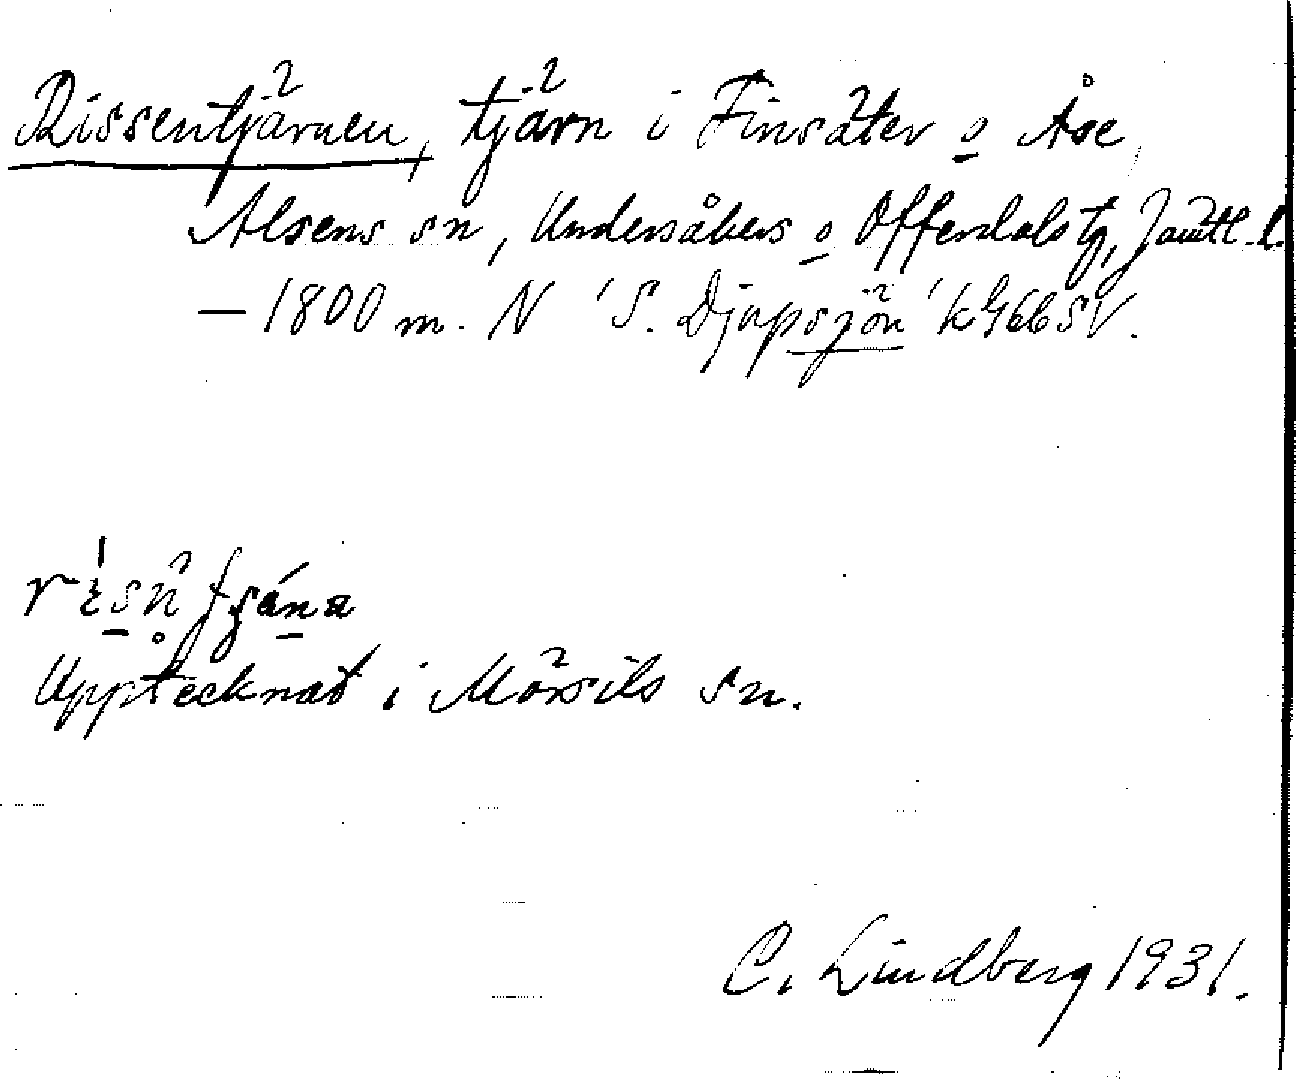 Rissentjärnen, tjärn i Finsäter o Åse,
Alsens sn, Undersåkers o Offerdals tg, Jämtl. l.
– 1800 m. N 'S. Djupsjön' k G66SV.
Upptecknat i Mörsils sn.
C. Lindberg 1931.